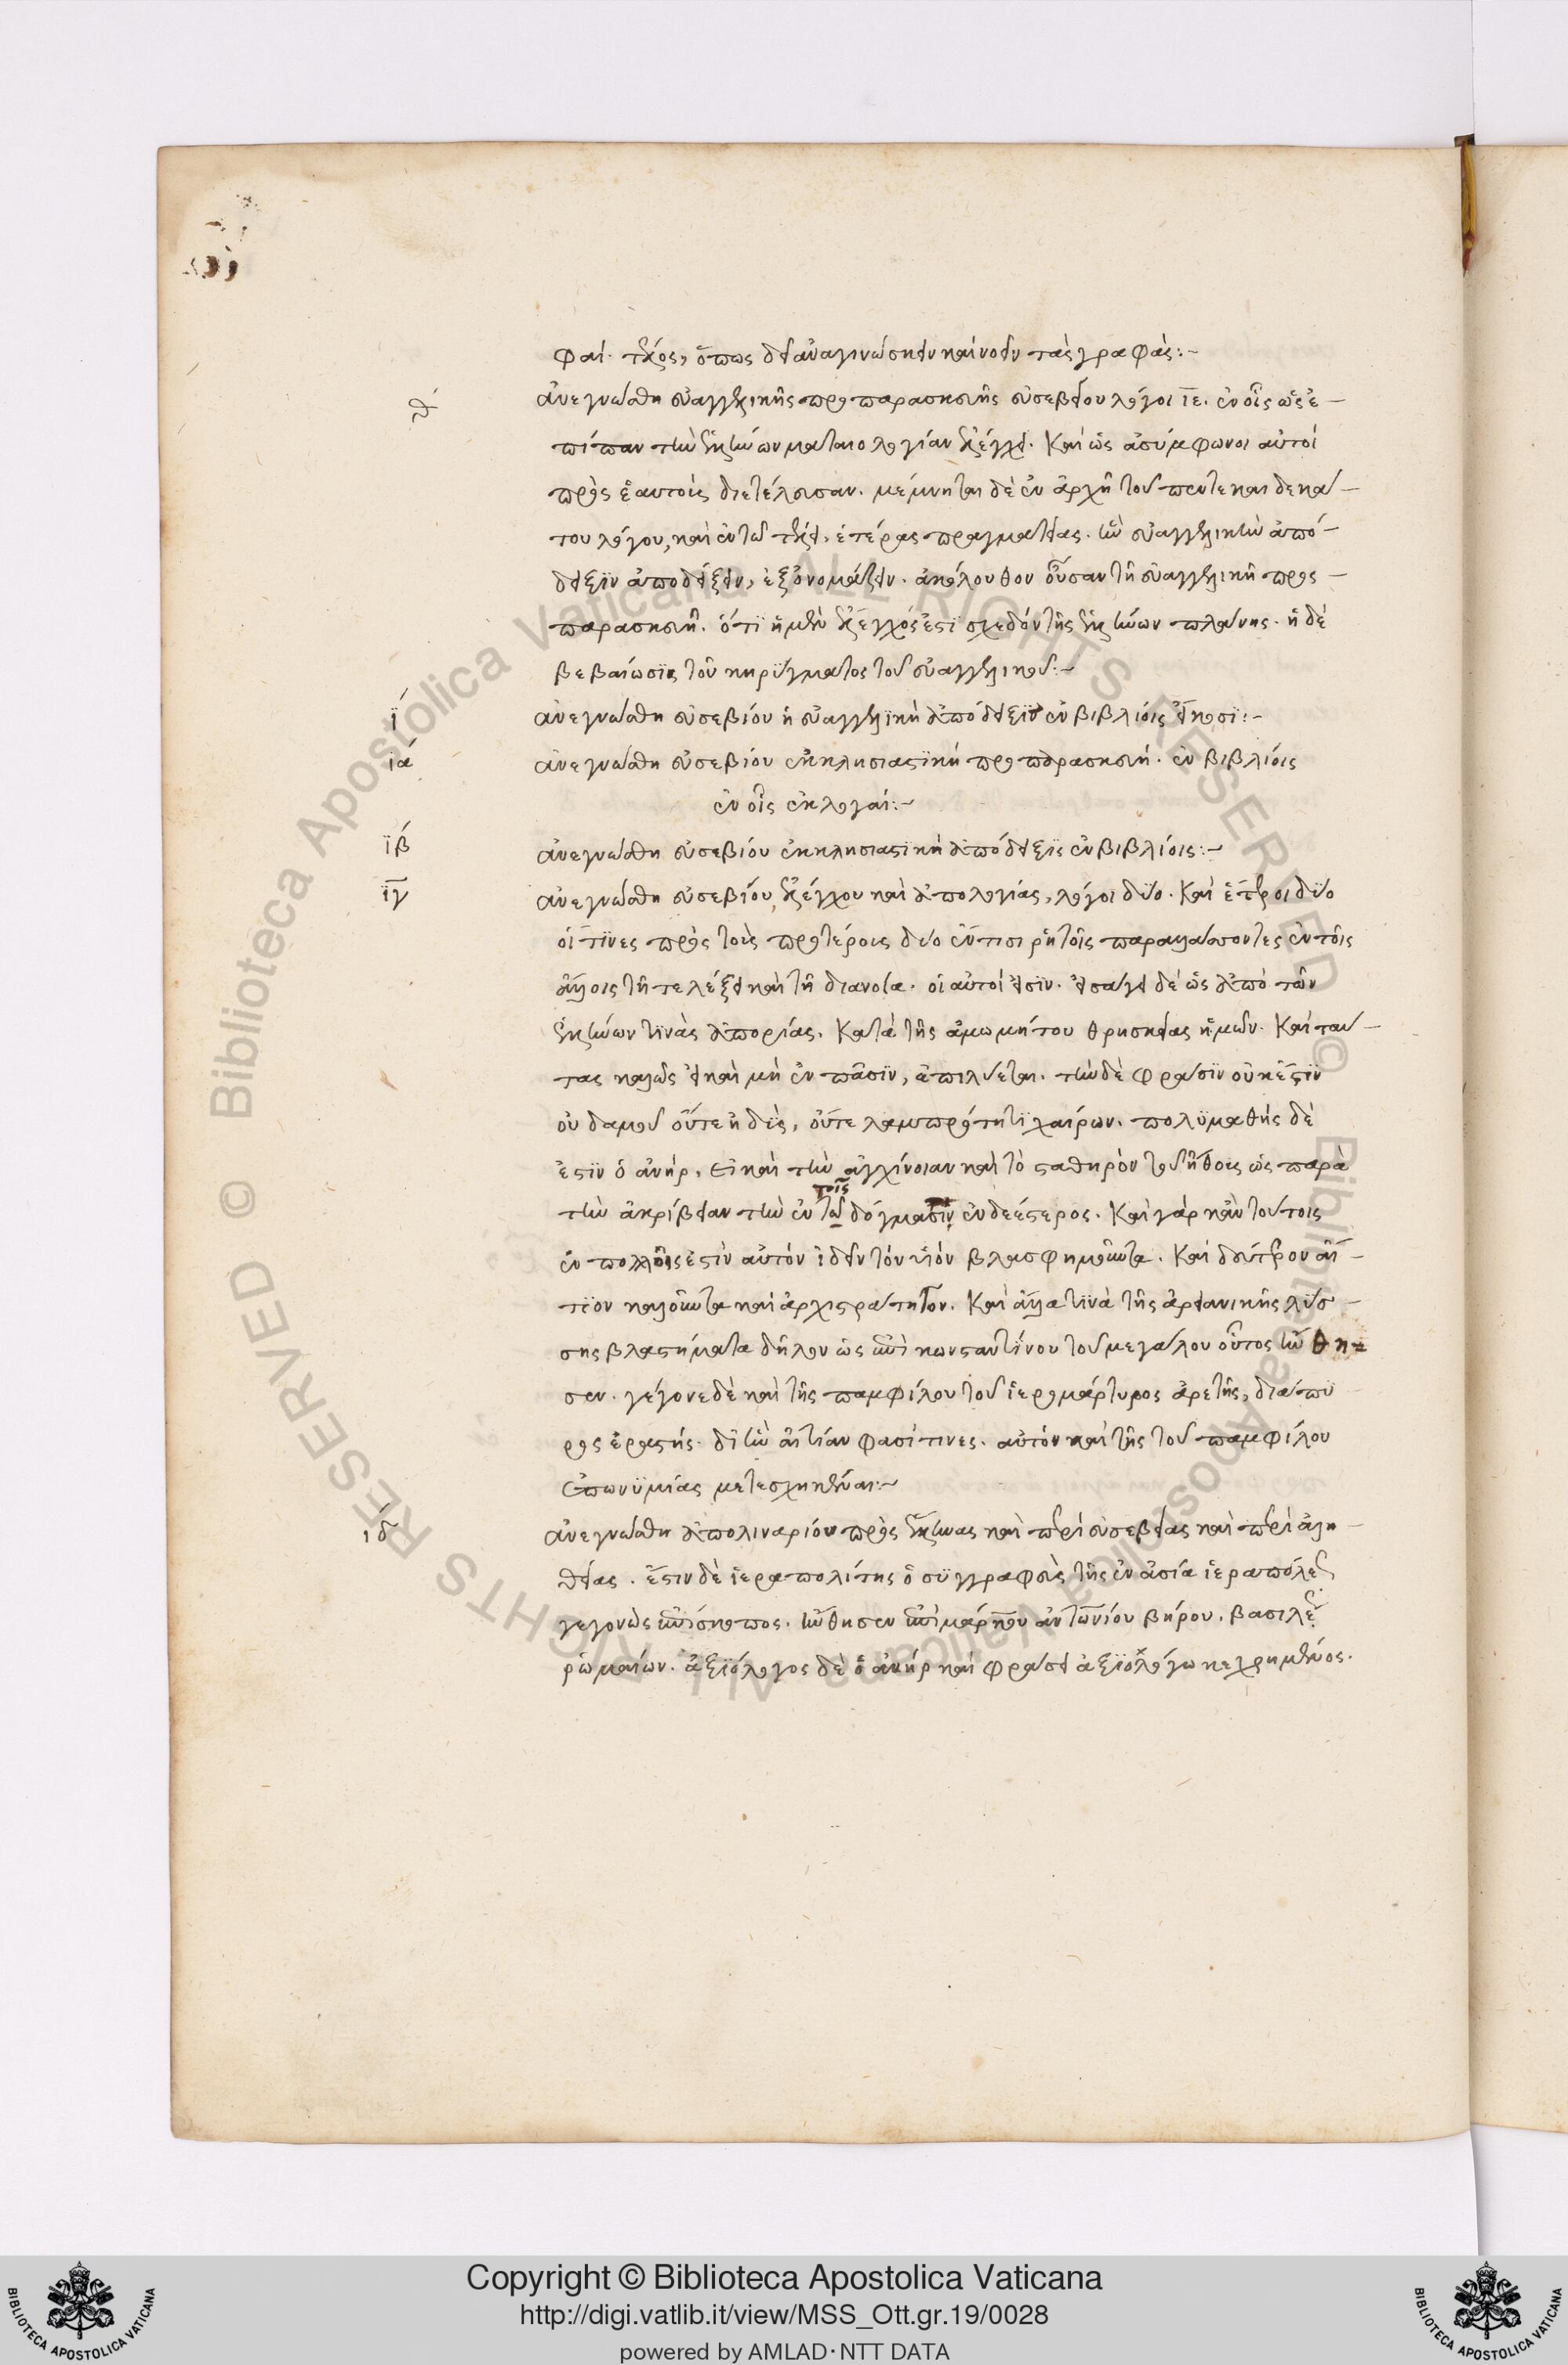 φαί. τέλος, ὅπως δεῖ ἀναγινώσκειν καὶ νοεῖν τὰς γραφάς:~
θ΄ ἀνεγνώσθη εὐαγγελικῆς προπαρασκευῆς εὐσεβείου λόγοι ιε. ἐν οἷς ὡς ἐ-
πίπαν τὴν ἑλλήνων ματαιολογίαν ἐλέγχει. Καὶ ὡς ἀσύμφωνοι αὐτοὶ
πρὸς ἑαυτοὺς διετέλεσαν. μέμνηται δὲ ἐν ἀρχῇ τοῦ πεντεκαιδεκά-
του λόγου, καὶ ἐν τῷ τέλει, ἑτέρας πραγματείας. ἣν εὐαγγελικὴν ἀπό-
δειξιν ἀποδείξειν, ἐξονομάζειν. ἀκόλουθον οὖσαν τῇ εὐαγγελικῇ προ-
παρασκευῇ. ὅτι ἡ μὲν ἔλεγχός ἐστι σχεδόν τῆς ἑλλήνων πλάνης. ἡ δὲ
βεβαίωσις τοῦ κηρύγματος τοῦ εὐαγγελικοῦ:~
ϊ ἀνεγνώσθη εὐσεβίου ἡ εὐαγγελικὴ ἀπόδειξιν ἐν βιβλίοις εἴκοσι:~
ϊά ἀνεγνώσθη εὐσεβίου ἐκκλησιαστικὴ προπαρασκευή. ἐν βιβλίοις
ἐν οἷς ἐκλογαί:~
ϊβ ἀνεγνώσθη εὐσεβίου ἐκκλησιαστικὴ ἀπόδειξις ἐν βιβλίοις:~
ϊγ ἀνεγνώσθη εὐσεβίου, ἐλέγχου καὶ ἀπολογίας, λόγοι δύο. Καὶ ἕτεροι δύο
οἵτινες πρὸς τοὺς προτέρους δύο ἔν τισι ῥητοῖς παραλλάττοντες ἐν τοῖς
ἄλλοις τῇ τε λέξει καὶ τῇ διανοία. οἱ αὐτοί εἰσιν. εἰσάγει δὲ ὡς ἀπὸ τῶν
ἑλλήνων τινὰς ἀπορίας. Κατὰ τῆς ἀμωμήτου θρησκείας ἡμῶν. Καὶ ταύ-
τας καλῶς εἰ καὶ μὴ ἐν πᾶσιν, ἐπιλύεται. τὴν δὲ φράσιν οὐκ ἔστιν
οὐδαμοῦ οὔτε ἡδὺς, οὔτε λαμπρότητι χαίρων. πολυμαθὴς δὲ
ἐστιν ὁ ἀνήρ, εἰ καὶ τὴν ἀγχίνοιαν καὶ τὸ σταθηρὸν τοῦ ἤθους ὡς παρὰ
τοῖς
τὴν ἀκρίβειαν τὴν ἐν τῷ δόγμασιν ἐνδεέστερος. Καὶ γὰρ κἀν τούτοις
ἐν πολλοῖς ἐστὶν αὐτόν ἰδεῖν τόν υἱόν βλασφημοῦντα. Καὶ δεύτερον αἴ-
τιον καλοῦντα καὶ ἀρχιστράτηγον. Καὶ ἄλλα τινὰ τῆς ἀρειανικῆς λύσ-
σης βλαστήματα δῆλον ὡς ἐπὶ κωνσταντίνου τοῦ μεγάλου οὗτος ἤνθη-
σεν. γέγονε δὲ καὶ τῆς παμφίλου τοῦ ἱερομάρτυρος ἀρετῆς, διάπυ
ρος ἐραστής. δι' ἣν αἰτίαν φασί τινες. αὐτόν καὶ τῆς τοῦ παμφίλου
ἐπωνυμίας μετεσχηκέναι:~
ιδ ἀνεγνώσθη ἀπολιναρίου πρὸς ἕλληνας καὶ περὶ εὐσεβείας καὶ περὶ ἀλη-
θείας. ἔστιν δὲ ἱεραπολίτης ὁ συγγραφεὺς τῆς ἐν ἀσία ἱεραπόλεως
γεγονὼς ἐπίσκοπος. ἤνθησεν ἐπὶ μάρκου ἀντωνίου βήρου. βασιλέως
ῥωμαίων. ἀξιόλογος δὲ ὁ ἀνὴρ καὶ φράσει ἀξιολόγω κεχρημένος.
Copyright © Biblioteca Apostolica Vaticana
http://digi.vatlib.it/view/MSS_Ott.gr.19/0028
powered by AMLAD·NTT DATA